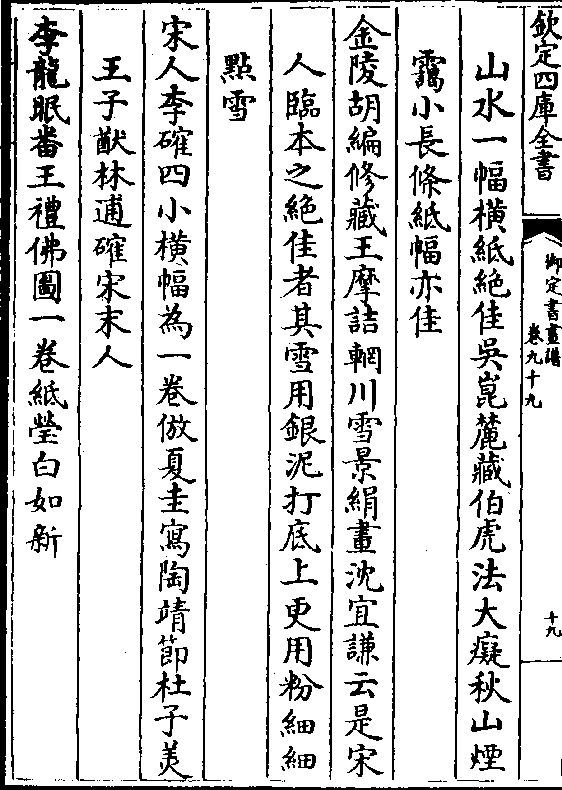 欽定四庫全書
御定書畫譜
卷九十九
十九
山水一幅橫紙絶佳吳崑麓藏伯虎法大癡秋山煙
靄小長條紙幅亦佳
金陵胡編修藏王摩詰輞川雪景絹畫沈宜謙云是宋
人臨本之絶佳者其雪用銀泥打底上更用粉細細
點雪
宋人李確四小橫幅為一卷倣夏圭寫陶靖節杜子美
王子猷林逋確宋末人
李龍眠番王禮佛圖一卷紙瑩白如新